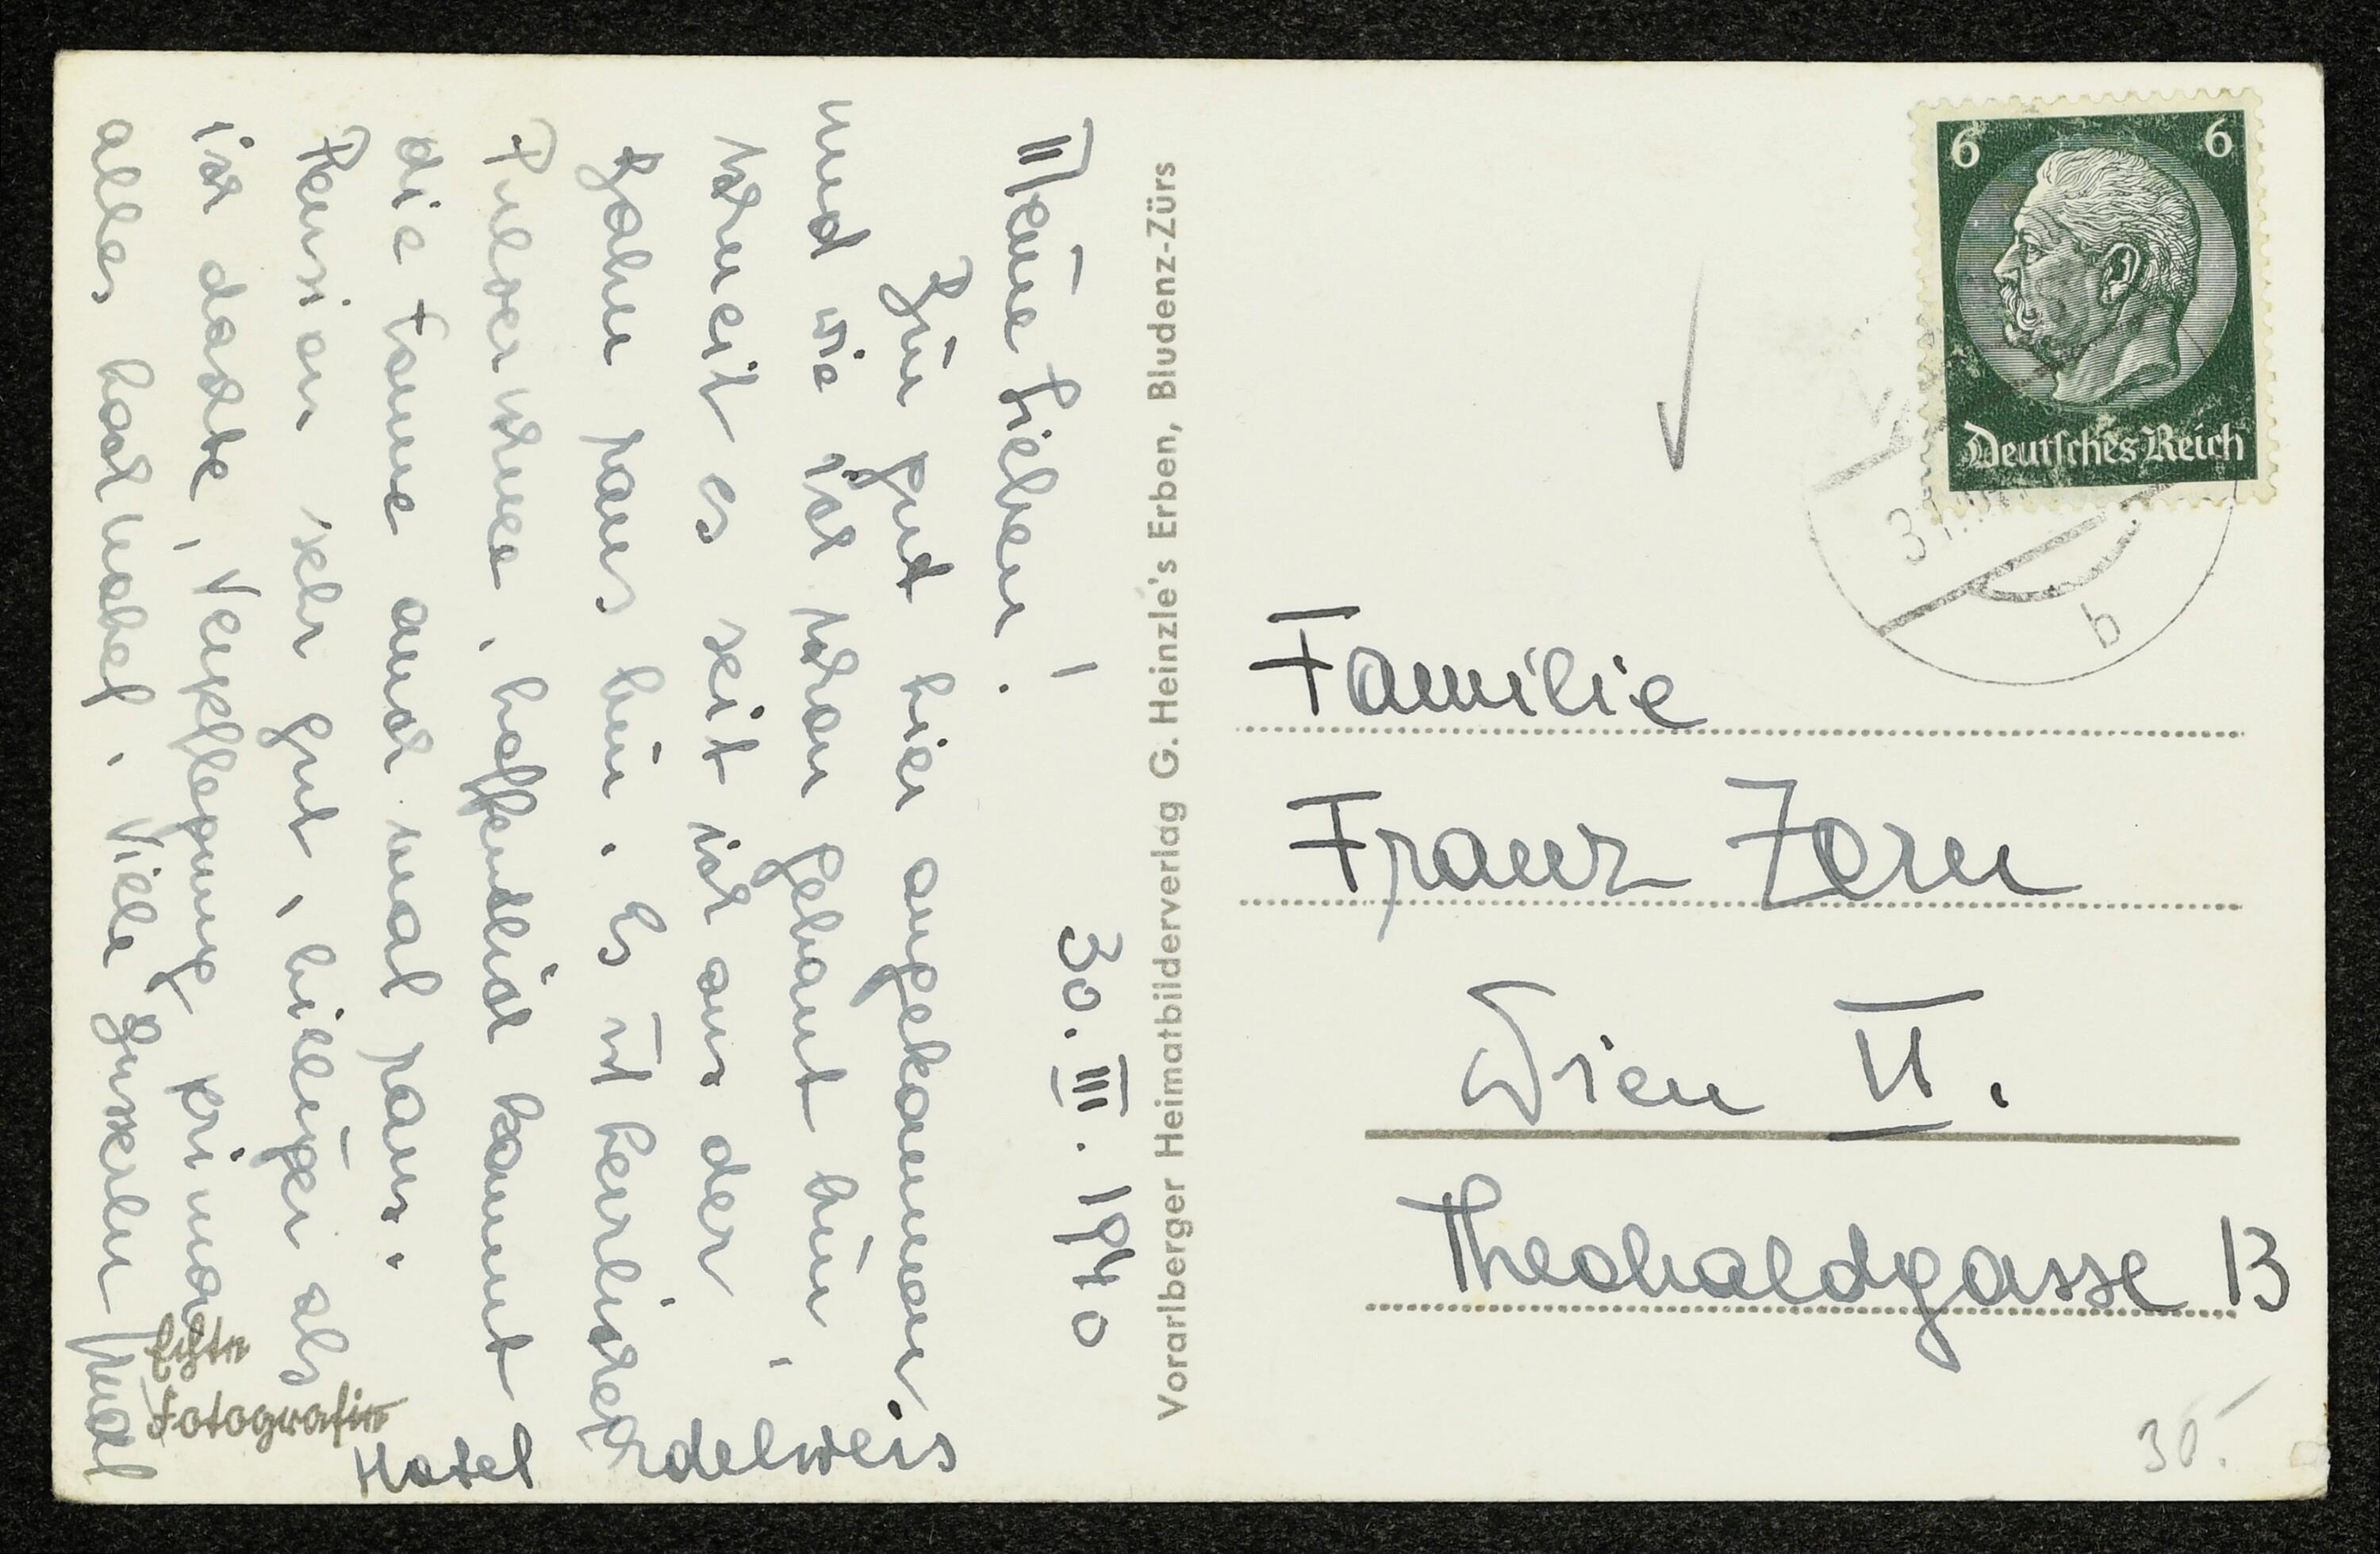 Meine Lieben! 30. III. 1940
Bin gut hier angekommen
und wie ich schon gebaut bin,
schneit es seit ich aus der
Bahn raus bin. Es ist herrlicher
Pulverschnee, hoffentlich kommt
die Sonne auch mal raus.
Pension sehr gut, billiger als
ich dachte, Verpflegung prima
alles hochnobel. Viele Busserln
Hotel Edelweis
Echte
Fotografie
Vorarlberger Heimatbilderverlag G. Heinzle's Erben, Bludenz-Zürs
6 6
Deutsches Reich
31.
b
Familie
Franz Zorn
Wien VI.
Theobaldgasse 13
30.-